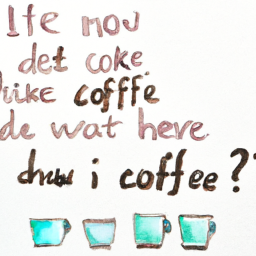 Ife nou
det coke
uike coffe
de wat here
i coffee?